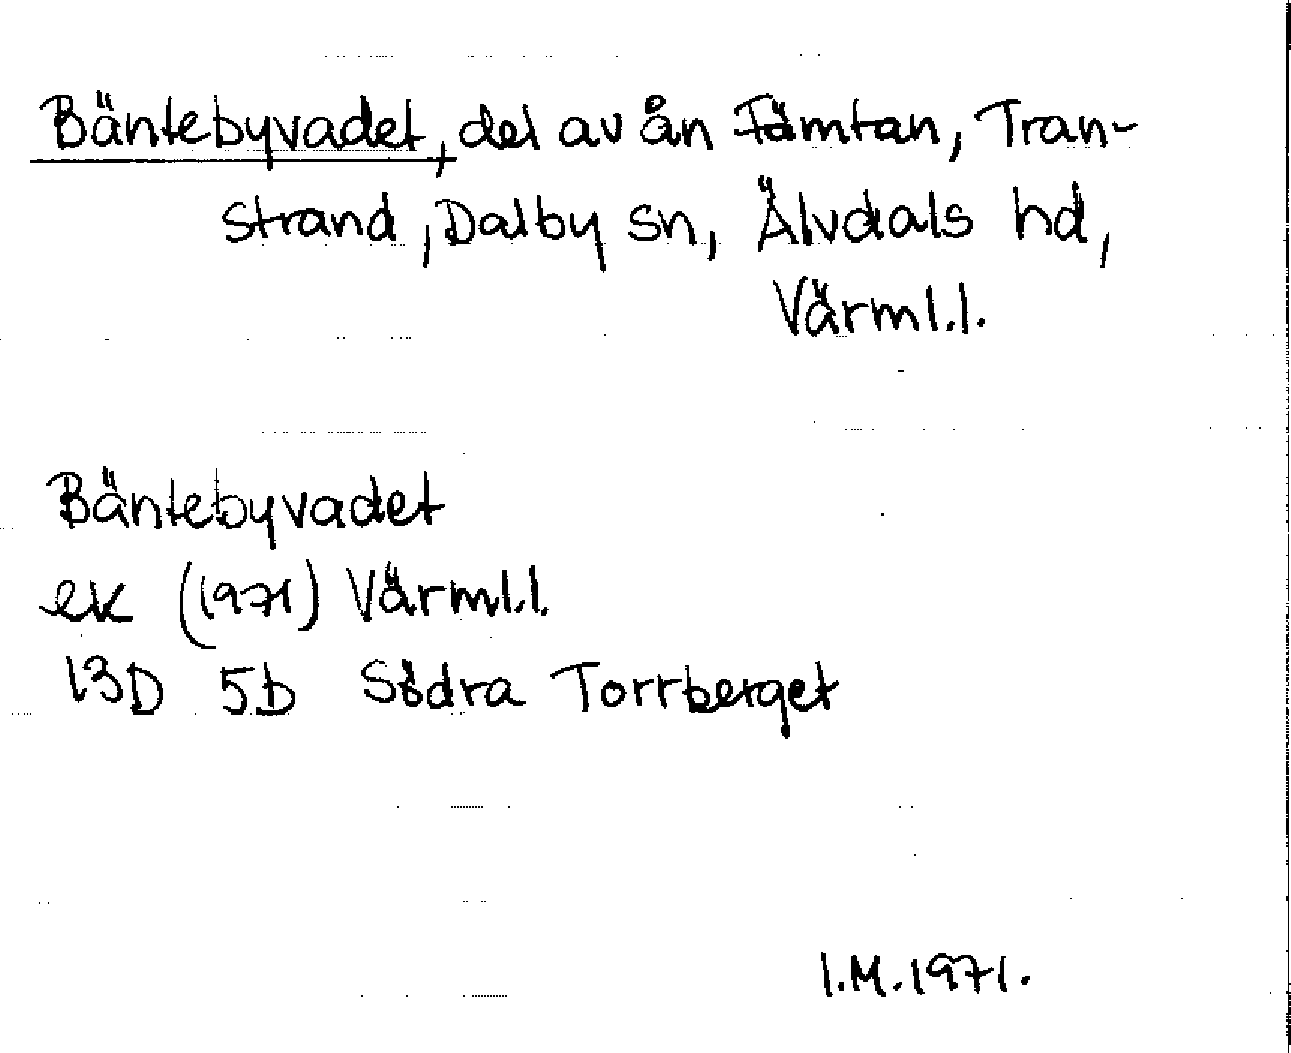 Bäntebyvadet, del av ån Fämtan, Tran-
strand, Dalby sn, Älvdals hd,
Värml.l.
Bäntebyvadet
ek (1971) Värml.l.
13D 5b Södra Torrberget
I.M.1971.